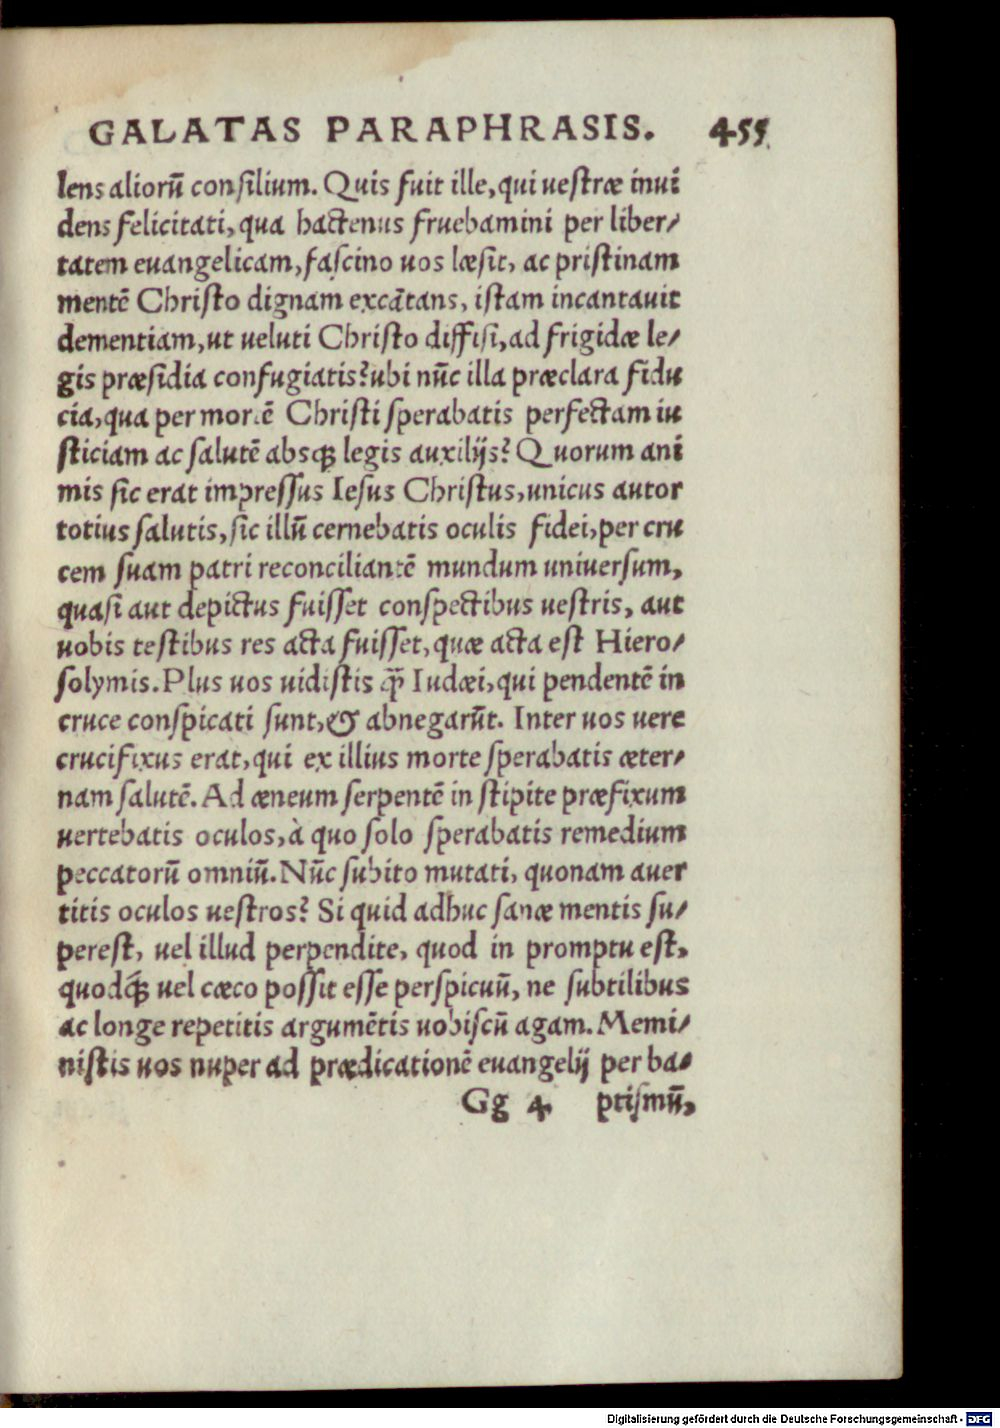 GALATAS PARAPHRASIS. 455
lens aliorū consilium. Quis fuit ille, qui uestræ inui
dens felicitati, qua hactenus fruebamini per liber/
tatem euangelicam, fascino uos læsit, ac pristinam
mentē Christo dignam excātans, istam incantauit
dementiam, ut ueluti Christo diffisi, ad frigidæ le/
gis præsidia confugiatis? ubi nūc illa præclara fidu
cia, qua per mortē Christi sperabatis perfectam iu
sticiam ac salutē absq; legis auxilijs? Quorum ani
mis sic erat impressus Iesus Christus, unicus autor
totius salutis, sic illū cernebatis oculis fidei, per cru
cem suam patri reconciliantē mundum uniuersum,
quasi aut depictus fuisset conspectibus uestris, aut
uobis testibus res acta fuisset, quæ acta est Hiero/
solymis. Plus uos uidistis q̄ Iudæi, qui pendentē in
cruce conspicati sunt, & abnegarūt. Inter uos uere
crucifixus erat, qui ex illius morte sperabatis æter/
nam salutē. Ad æneum serpentē in stipite præfixum
uertebatis oculos, à quo solo sperabatis remedium
peccatorū omniū. Nūc subito mutati, quonam auer
titis oculos uestros? Si quid adhuc sanæ mentis su/
perest, uel illud perpendite, quod in promptu est,
quodq́; uel cæco possit esse perspicuū, ne subtilibus
ac longe repetitis argumētis uobiscū agam. Memi/
nistis uos nuper ad prædicationē euangelij per ba/
Gg 4 ptismū,
Digitalisierung gefördert durch die Deutsche Forschungsgemeinschaft - DFG